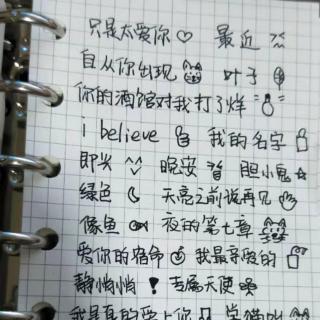 只是太爱你 最近
自从你出现 叶子
你的酒馆对我打了烊
i believe 我的名字
即兴 晚安 胆小鬼
绿色 天亮之前说再见
像鱼 夜的第七章
爱你的宿命 我最亲爱的
静悄悄 专属天使
我是真的爱上你 学猫叫